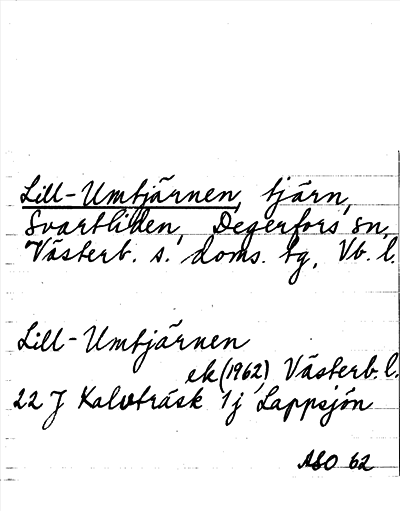 Lill-Umtjärnen, tjärn,
Svartliden, Degerfors sn,
Västerb. s. doms. tg, Vb. l.
Lill-Umtjärnen
ek (1962) Västerb. l.
22 J Kalvträsk 1 j Lappsjön
ASO 62